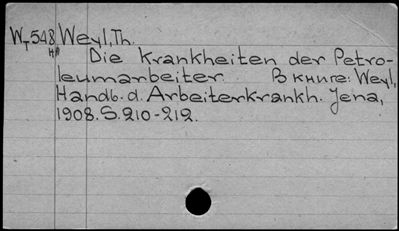 W-548 Weyl, Th.
Die Krankheiten der Petro-
leumarbeiter. В книге: Weyl,
Handb. d. Arbeiterkrankh. Jena,
1908. S. 210-212.